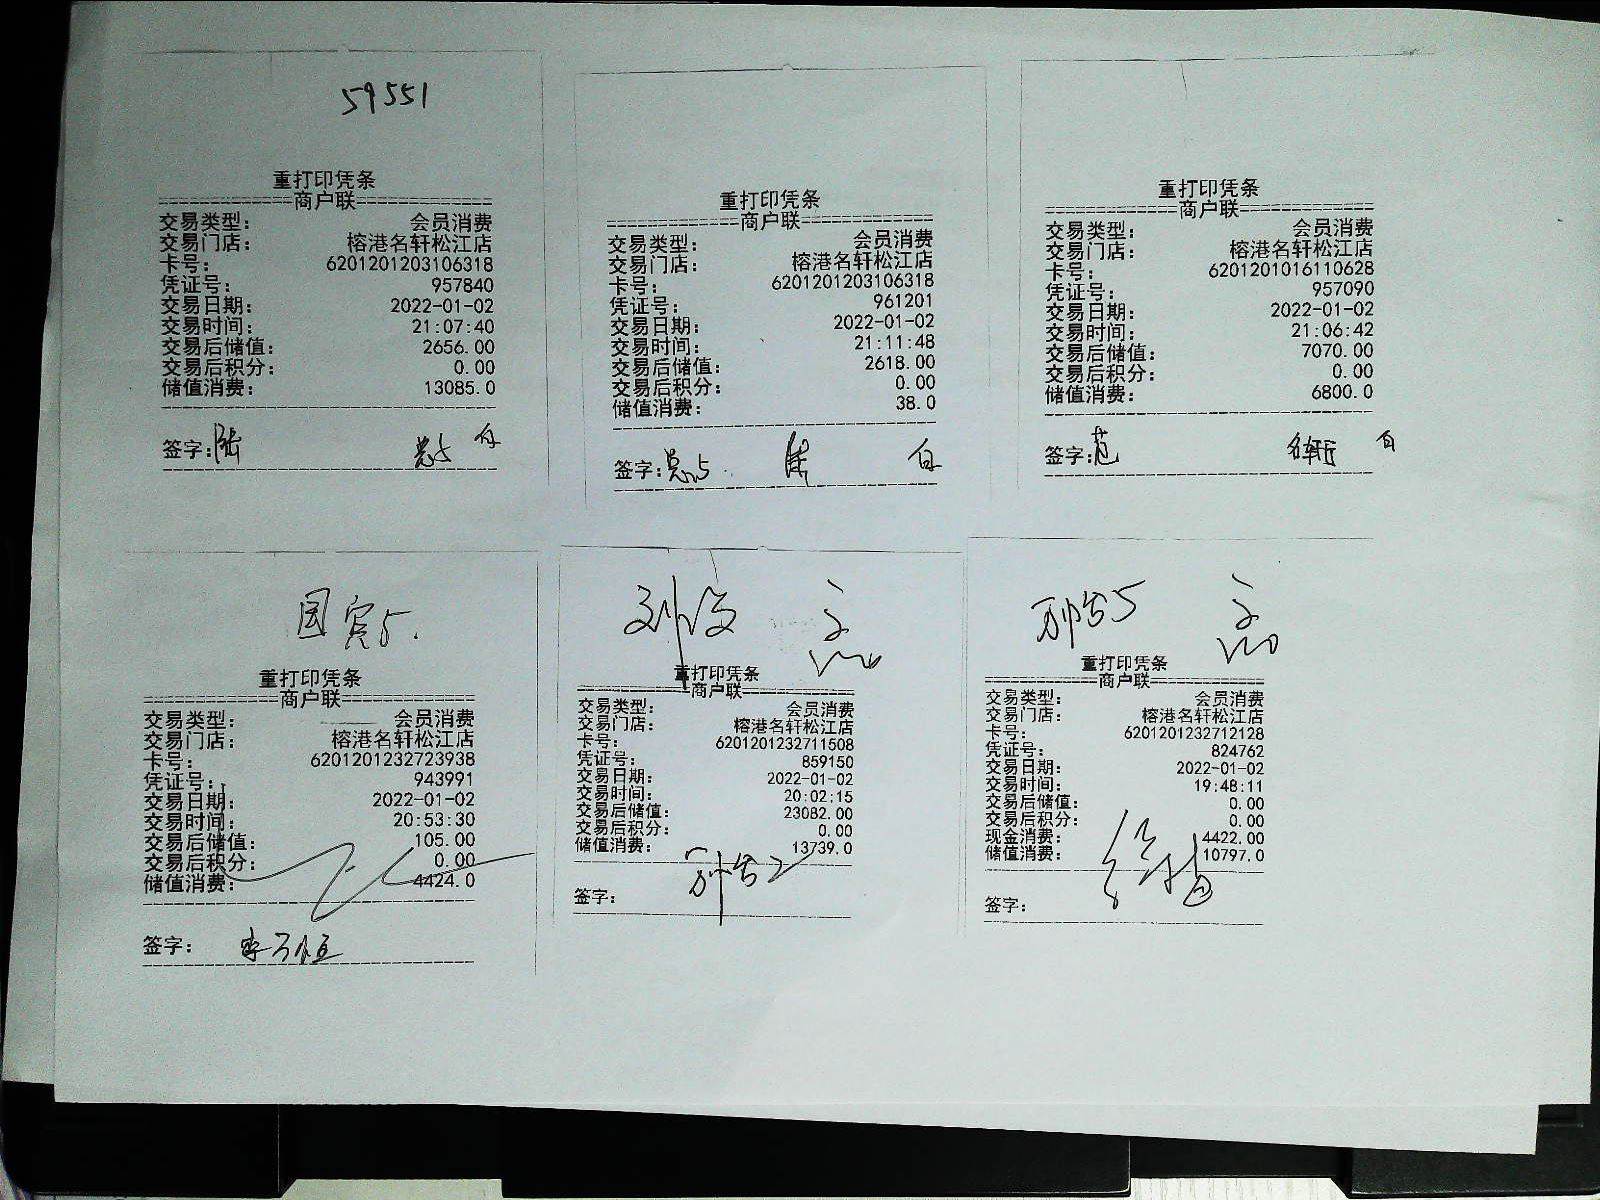 59551
重打印凭条
================商户联================
交易类型: 会员消费
交易门店: 榕港名轩松江店
卡号: 6201201203106318
凭证号: 957840
交易日期: 2022-01-02
交易时间: 21:07:40
交易后储值: 2656.00
交易后积分: 0.00
储值消费: 13085.0
签字: 陆
重打印凭条
================商户联================
交易类型: 会员消费
交易门店: 榕港名轩松江店
卡号: 6201201203106318
凭证号: 961201
交易日期: 2022-01-02
交易时间: 21:11:48
交易后储值: 2618.00
交易后积分: 0.00
储值消费: 38.0
签字:
重打印凭条
================商户联================
交易类型: 会员消费
交易门店: 榕港名轩松江店
卡号: 6201201016110628
凭证号: 957090
交易日期: 2022-01-02
交易时间: 21:06:42
交易后储值: 7070.00
交易后积分: 0.00
储值消费: 6800.0
签字: 范
国宾5.
重打印凭条
================商户联================
交易类型: 会员消费
交易门店: 榕港名轩松江店
卡号: 6201201232723938
凭证号: 943991
交易日期: 2022-01-02
交易时间: 20:53:30
交易后储值: 105.00
交易后积分: 0.00
储值消费: 4424.0
签字:
重打印凭条
================商户联================
交易类型: 会员消费
交易门店: 榕港名轩松江店
卡号: 6201201232711508
凭证号: 859150
交易日期: 2022-01-02
交易时间: 20:02:15
交易后储值: 23082.00
交易后积分: 0.00
储值消费: 13739.0
签字:
重打印凭条
================商户联================
交易类型: 会员消费
交易门店: 榕港名轩松江店
卡号: 6201201232712128
凭证号: 824762
交易日期: 2022-01-02
交易时间: 19:48:11
交易后储值: 0.00
交易后积分: 0.00
现金消费: 4422.00
储值消费: 10797.0
签字: